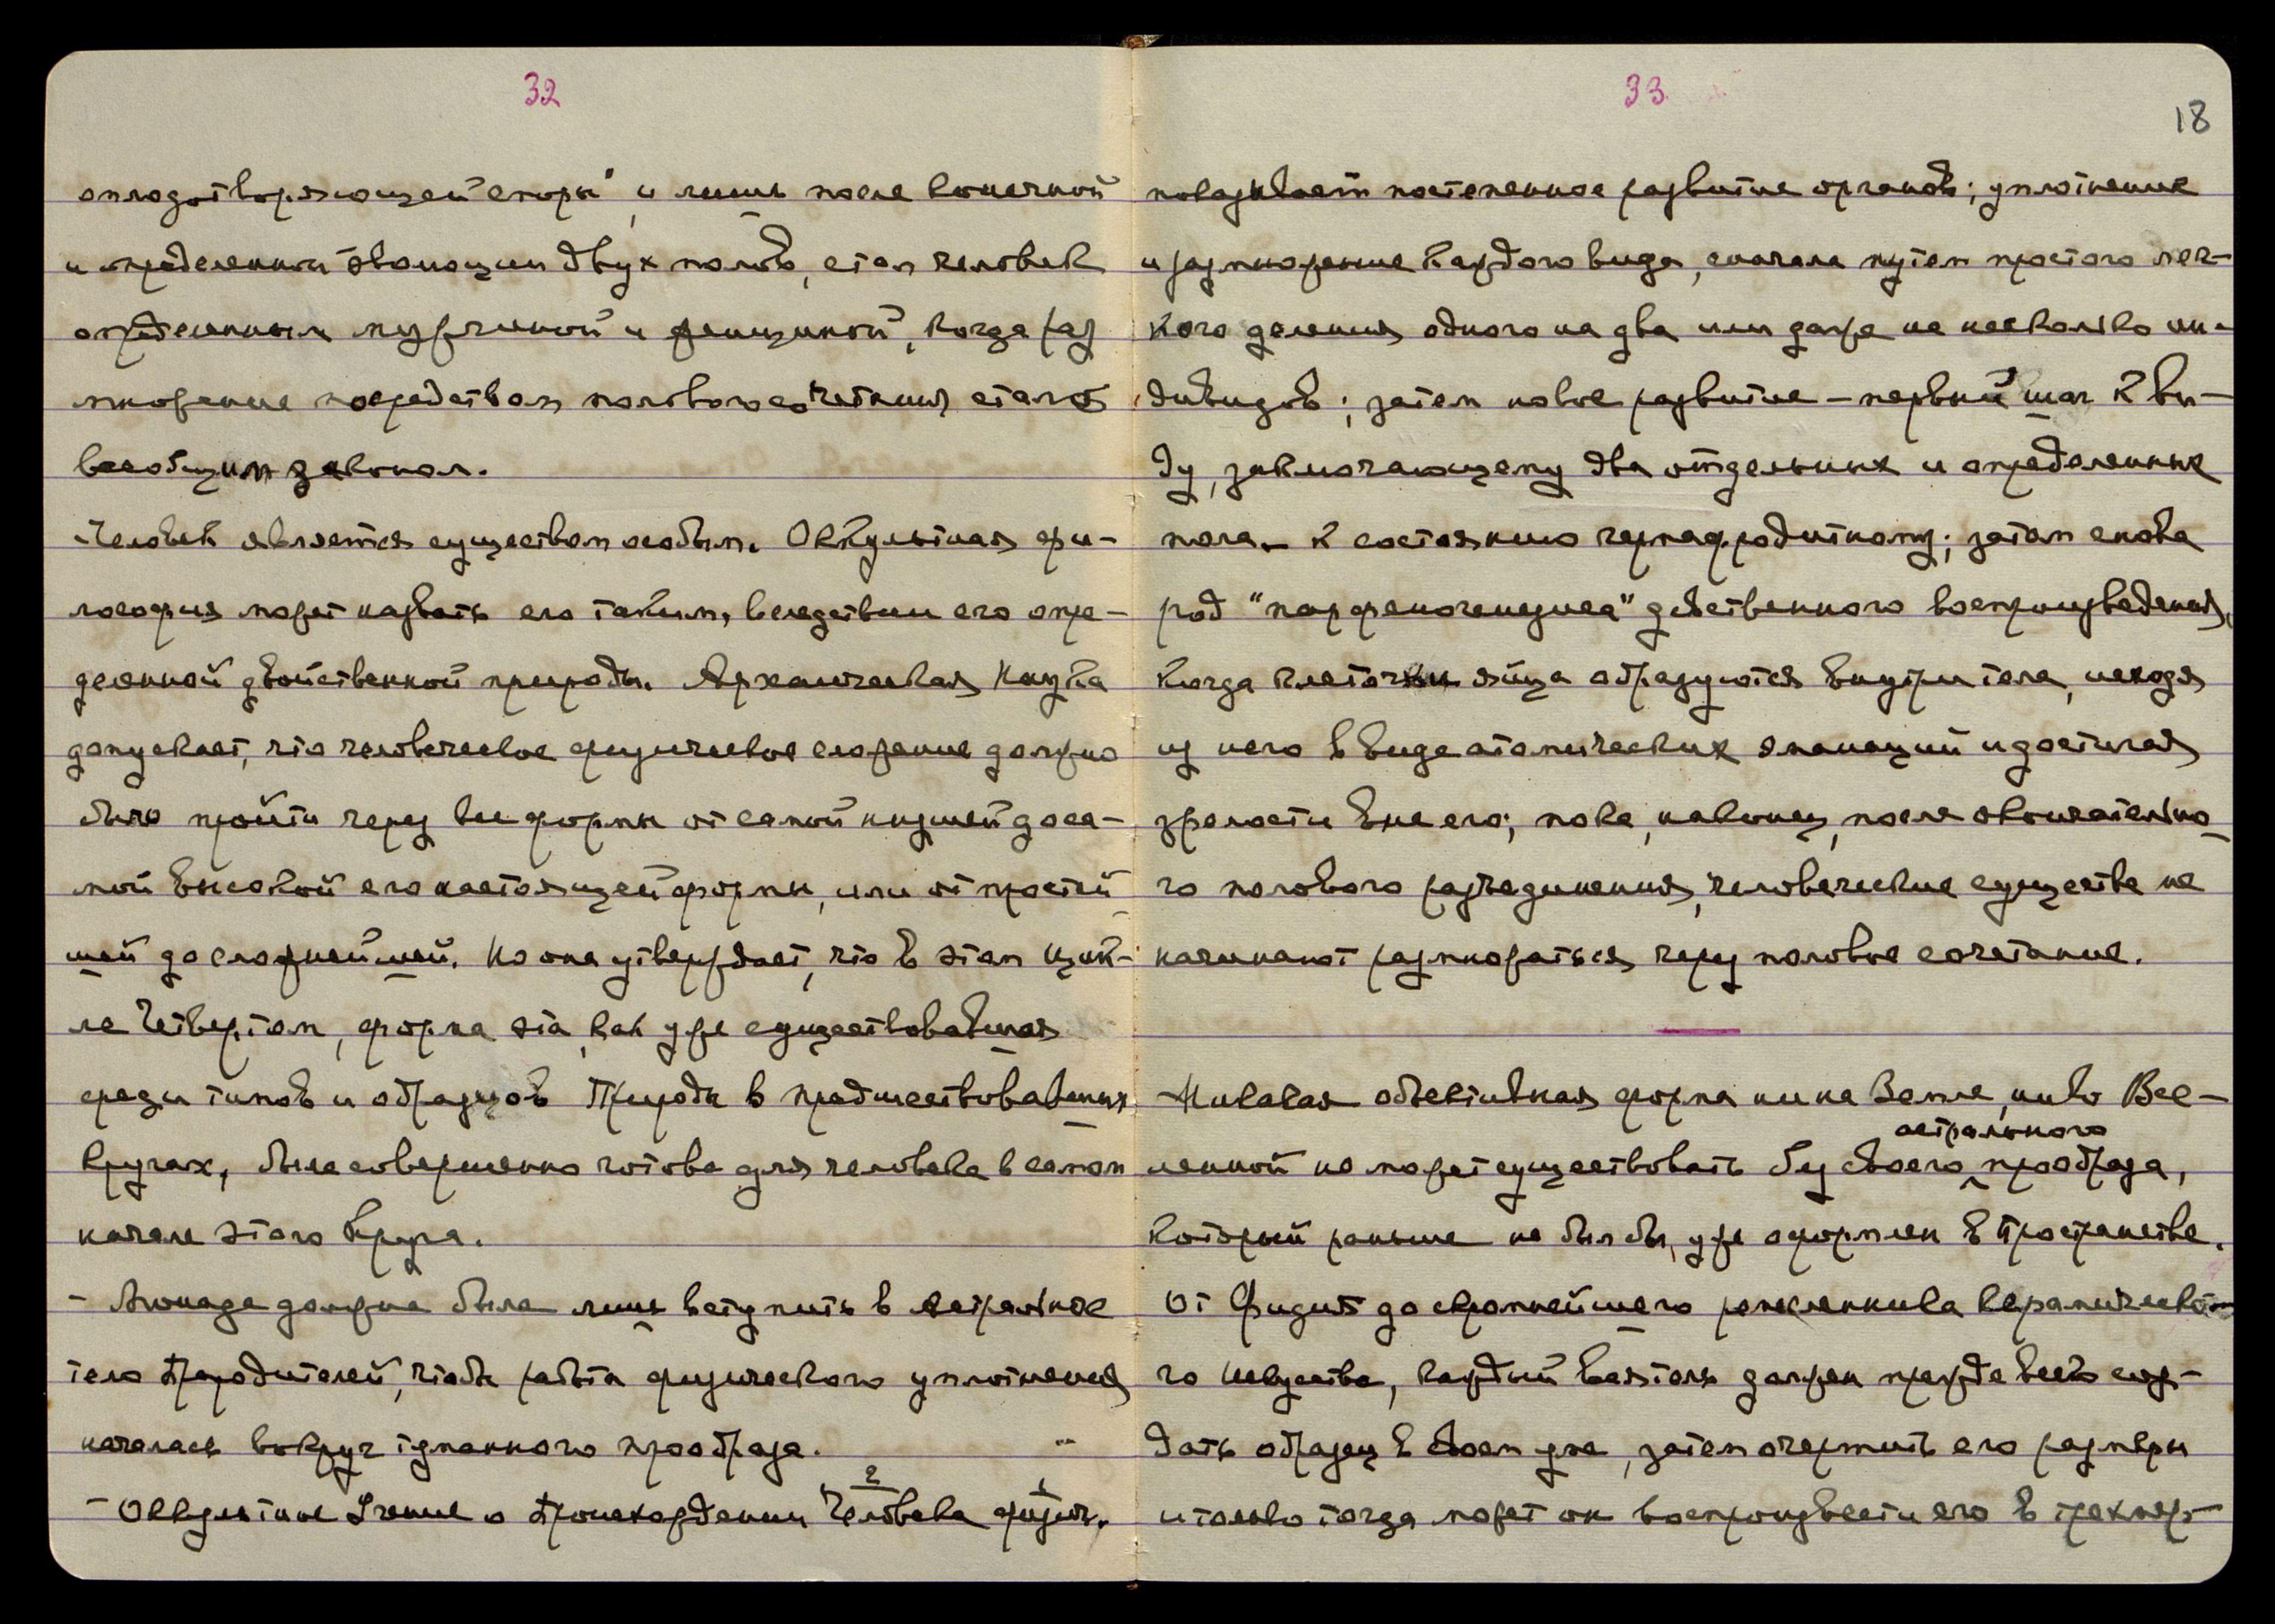 32
оплодотворяющей споры" и лишь после конечной
и определенной эволюции двух полов, стал человек
определенным мужчиной и женщиной, когда раз
множение посредством полового сочетания стало
всеобщим законом.
Человек является существом особым. Оккультная фи-
лософия может назвать его таким, вследствии его опре-
деленной двойственной природы. Архаическая Наука
допускает, что человеческое физическое сложение должно
было пройти через все формы от самой низшей до са-
мой высокой его настоящей формы, или от простей
шей до сложнейшей. Но она утверждает, что в этом цик-
ле Четвертом, форма эта, как уже существовавшая
среди типов и образцов Природы в предшествовавших
кругах, была совершенно готова для человека в самом
начале этого круга.
- Монада должна была лишь вступить в астральное
тело Прародителей, чтобы работа физического уплотнения
началась вокруг туманного прообраза.
2 1
- Оккультное Учение о Происхождении Человека физич.
33.
18
показывает постепенное развитие органов; уплотнение
и размножение каждого вида, сначала путем простого лег-
кого деления одного на два или даже на несколько ин-
дивидов; затем новое развитие – первый шаг к ви-
ду, заключающему два отдельных и определенных
пола – к состоянию гермафродитному; затем снова
род "парфеногенезиса" девственного воспроизведения,
когда клеточки яйца образуются внутри тела, исходя
из него в виде атомических эманаций и достигая
зрелости вне его; пока, наконец, после окончательно-
го полового разъединения, человеческие существа не
начинают размножаться через половое сочетание.
Никакая объективная форма ни на Земле, ни во Все-
ленной не может существовать без своего астрального прообраза,
который раньше не был бы уже оформлен в Пространстве.
От Фидия до скромнейшего ремесленника керамическо-
го искусства, каждый ваятель должен прежде всего соз-
дать образец в своем уме, затем очертить его размеры
и только тогда может он воспроизвести его в трехмер-